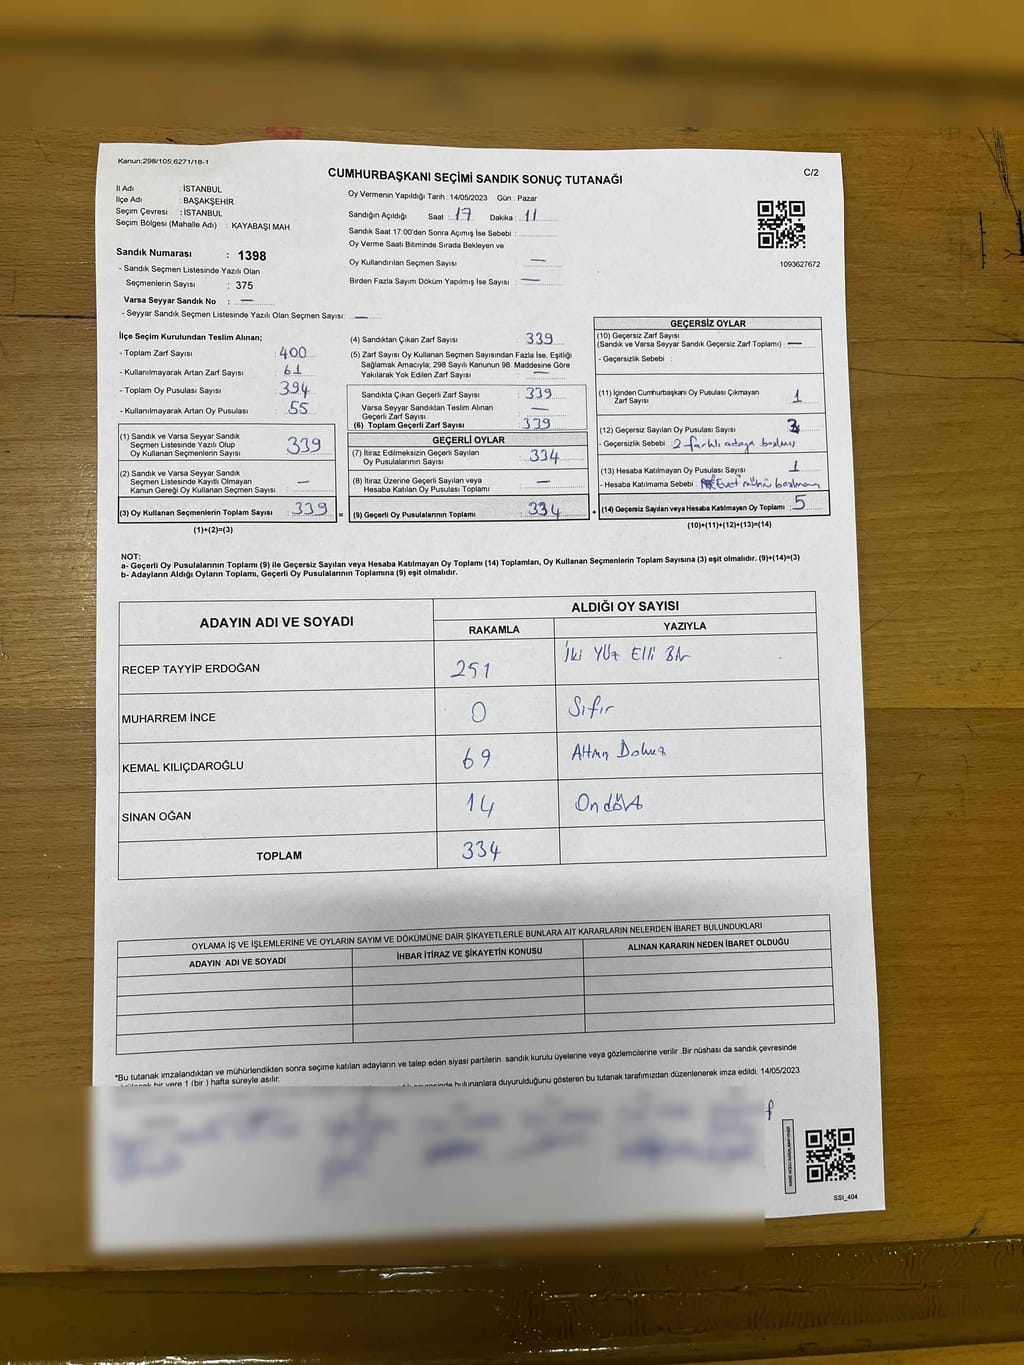 Kanun;298/105;6271/18-1
CUMHURBAŞKANI SEÇİMİ SANDIK SONUÇ TUTANAĞI
C/2
İl Adı : İSTANBUL
İlçe Adı : BAŞAKŞEHİR
Seçim Çevresi : İSTANBUL
Seçim Bölgesi (Mahalle Adı) : KAYABAŞI MAH.
Oy Vermenin Yapıldığı Tarih : 14/05/2023 Gün : Pazar
Sandığın Açıldığı Saat : 17 Dakika : 11
Sandık Saat 17:00'den Sonra Açımış İse Sebebi :
Oy Verme Saati Bitiminde Sırada Bekleyen ve
Oy Kullandırılan Seçmen Sayısı : —
Birden Fazla Sayım Döküm Yapılmış İse Sayısı : —
1093627672
Sandık Numarası : 1398
- Sandık Seçmen Listesinde Yazılı Olan
Seçmenlerin Sayısı : 375
Varsa Seyyar Sandık No : —
- Seyyar Sandık Seçmen Listesinde Yazılı Olan Seçmen Sayısı: —
İlçe Seçim Kurulundan Teslim Alınan;
- Toplam Zarf Sayısı : 400
- Kullanılmayarak Artan Zarf Sayısı : 61
- Toplam Oy Pusulası Sayısı : 394
- Kullanılmayarak Artan Oy Pusulası : 55
(1) Sandık ve Varsa Seyyar Sandık
Seçmen Listesinde Yazılı Olup
Oy Kullanan Seçmenlerin Sayısı : 339
(2) Sandık ve Varsa Seyyar Sandık
Seçmen Listesinde Kayıtlı Olmayan
Kanun Gereği Oy Kullanan Seçmen Sayısı : —
(3) Oy Kullanan Seçmenlerin Toplam Sayısı : 339 =
(1)+(2)=(3)
(4) Sandıktan Çıkan Zarf Sayısı : 339
(5) Zarf Sayısı Oy Kullanan Seçmen Sayısından Fazla İse, Eşitliği
Sağlamak Amacıyla; 298 Sayılı Kanunun 98. Maddesine Göre
Yakılarak Yok Edilen Zarf Sayısı : —
Sandıkta Çıkan Geçerli Zarf Sayısı : 339
Varsa Seyyar Sandıktan Teslim Alınan
Geçerli Zarf Sayısı : —
(6) Toplam Geçerli Zarf Sayısı : 339
GEÇERLİ OYLAR
(7) İtiraz Edilmeksizin Geçerli Sayılan
Oy Pusulalarının Sayısı : 334
(8) İtiraz Üzerine Geçerli Sayılan veya
Hesaba Katılan Oy Pusulası Toplamı : —
(9) Geçerli Oy Pusulalarının Toplamı : 334 +
GEÇERSİZ OYLAR
(10) Geçersiz Zarf Sayısı
(Sandık ve Varsa Seyyar Sandık Geçersiz Zarf Toplamı) : —
- Geçersizlik Sebebi :
(11) İçinden Cumhurbaşkanı Oy Pusulası Çıkmayan
Zarf Sayısı : 1
(12) Geçersiz Sayılan Oy Pusulası Sayısı : 3
- Geçersizlik Sebebi : 2 farklı adaya basılmış
(13) Hesaba Katılmayan Oy Pusulası Sayısı : 1
- Hesaba Katılmama Sebebi : Evet mührü
(14) Geçersiz Sayılan veya Hesaba Katılmayan Oy Toplamı : 5
(10)+(11)+(12)+(13)=(14)
NOT:
a- Geçerli Oy Pusulalarının Toplamı (9) ile Geçersiz Sayılan veya Hesaba Katılmayan Oy Toplamı (14) Toplamları, Oy Kullanan Seçmenlerin Toplam Sayısına (3) eşit olmalıdır. (9)+(14)=(3)
b- Adayların Aldığı Oyların Toplamı, Geçerli Oy Pusulalarının Toplamına (9) eşit olmalıdır.
ADAYIN ADI VE SOYADI
ALDIĞI OY SAYISI
RAKAMLA YAZIYLA
RECEP TAYYİP ERDOĞAN 251 İki Yüz Elli Bir
MUHARREM İNCE 0 Sıfır
KEMAL KILIÇDAROĞLU 69 Altmış Dokuz
SİNAN OĞAN 14 On dört
TOPLAM 334
OYLAMA İŞ VE İŞLEMLERİNE VE OYLARIN SAYIM VE DÖKÜMÜNE DAİR ŞİKAYETLERLE BUNLARA AİT KARARLARIN NELERDEN İBARET BULUNDUKLARI
ADAYIN ADI VE SOYADI İHBAR İTİRAZ VE ŞİKAYETİN KONUSU ALINAN KARARIN NEDEN İBARET OLDUĞU
*Bu tutanak imzalandıktan ve mühürlendikten sonra seçime katılan adayların ve talep eden siyasi partilerin sandık kurulu üyelerine veya gözlemcilerine verilir .Bir nüshası da sandık çevresinde
bir yere 1 (bir ) hafta süreyle asılır.
bulunanlara duyurulduğunu gösteren bu tutanak tarafımızdan düzenlenerek imza edildi. 14/05/2023
SSİ_404